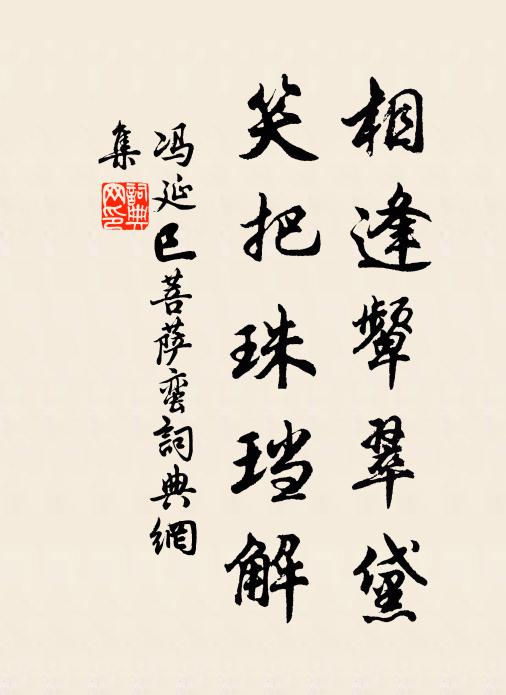 相逢颦翠黛
笑把珠珰解
冯延巳菩萨蛮詞典網
集
詞典
网印